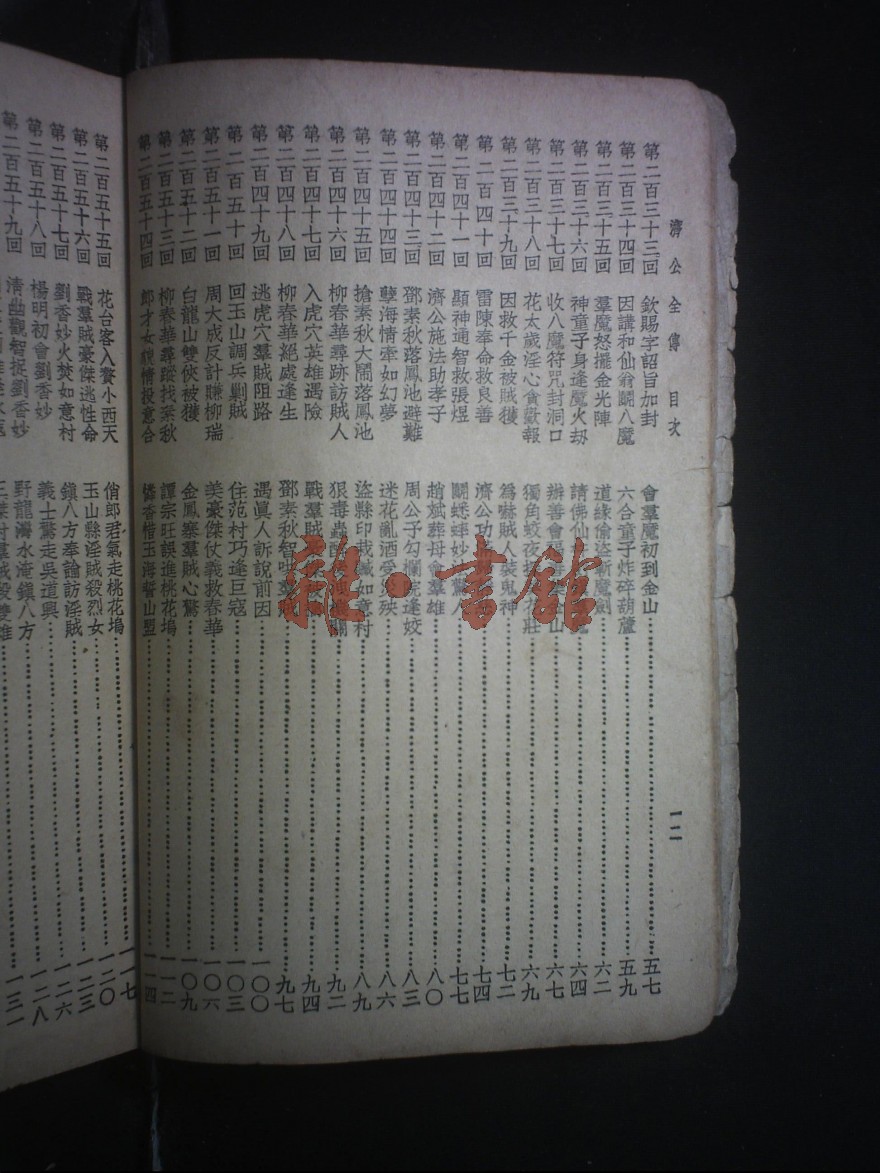 濟公全傳 目次
一二
第二百三十三回 欽賜字詔旨加封 會羣魔初到金山 五七
第二百三十四回 因講和仙翁鬭八魔 六合童子炸碎葫蘆 五九
第二百三十五回 羣魔怒擺金光陣 道緣偷盜斬魔劍 六二
第二百三十六回 神童子身逢魔火刧 請佛仙 魔 六四
第二百三十七回 收八魔符咒封洞口 辦善會 金山 六六
第二百三十八回 花太歲淫心貪歡報 獨角蛟夜探 花莊 六九
第二百三十九回 因救千金被賊獲 爲嚇賊人裝鬼神 七二
第二百四十回 雷陳奉命救良善 濟公功 七四
第二百四十一回 顯神通智救張煜 鬭蟋蟀妙 驚人 七七
第二百四十二回 濟公施法助孝子 趙斌葬母會羣雄 八〇
第二百四十三回 鄧素秋落鳳池避難 周公子勾欄院逢姣 八三
第二百四十四回 孽海情牽如幻夢 迷花亂酒受災殃 八六
第二百四十五回 搶素秋大鬧落鳳池 盜縣印栽贓如意村 八九
第二百四十六回 柳春華尋跡訪賊人 狠毒蟲 九二
第二百四十七回 入虎穴英雄遇險 戰羣賊 九四
第二百四十八回 柳春華絕處逢生 鄧素秋智 羣賊 九七
第二百四十九回 逃虎穴羣賊阻路 遇眞人訴說前因 一〇〇
第二百五十回 回玉山調兵剿賊 住范村巧逢巨寇 一〇三
第二百五十一回 周大成反計賺柳瑞 美豪傑仗義救春華 一〇六
第二百五十二回 白龍山雙俠被獲 金鳳寨羣賊心驚 一〇九
第二百五十三回 柳春華尋蹤找素秋 譚宗旺誤進桃花塢 一一二
第二百五十四回 郎才女貌情投意合 憐香惜玉海誓山盟 一一四
第二百五十五回 花台客入贅小西天 俏郎君氣走桃花塢 一一七
第二百五十六回 戰羣賊豪傑逃性命 玉山縣淫賊殺烈女 一二〇
第二百五十七回 劉香妙火焚如意村 鎭八方奉諭訪淫賊 一二三
第二百五十八回 楊明初會劉香妙 義士驚走吳道興 一二六
第二百五十九回 清幽觀智捉劉香妙 野龍灣水淹鎭八方 一二八
一三一
雜·書館